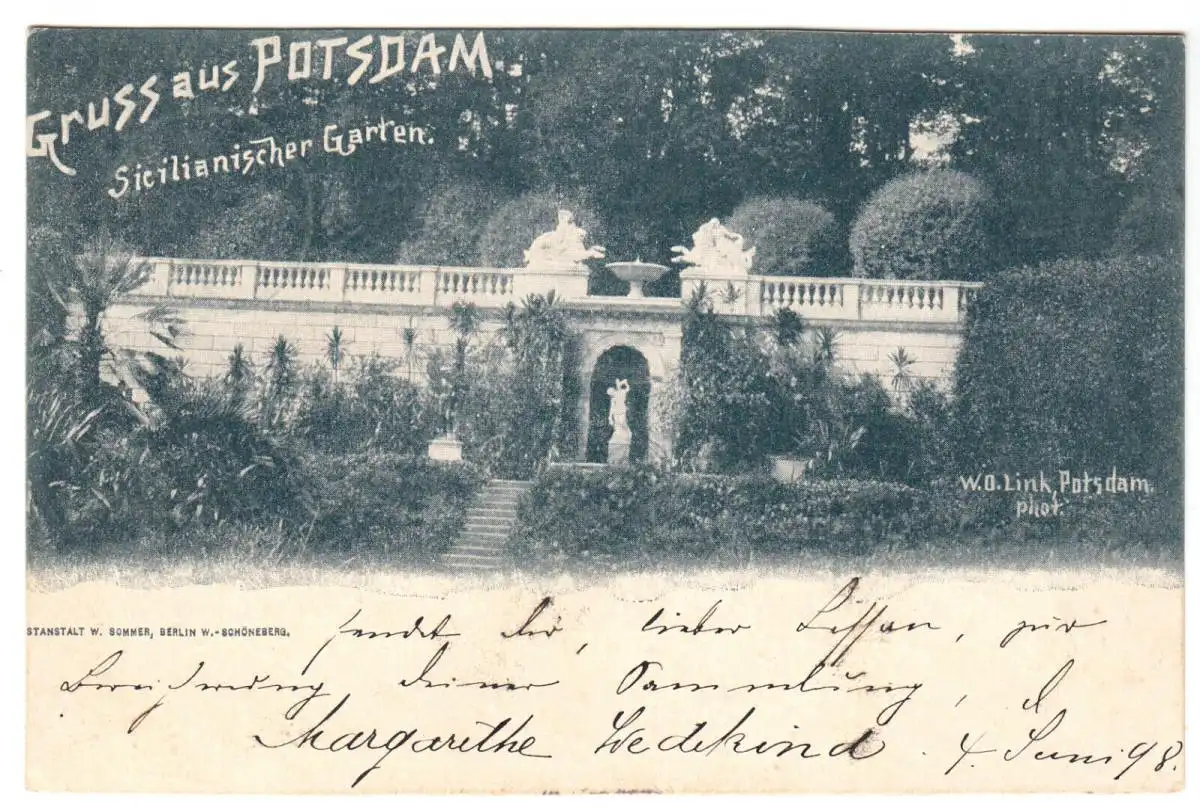 Gruss aus POTSDAM.
Sicilianischer Garten.
W.O. Link, Potsdam.
phot.
STANSTALT W. SOMMER, BERLIN W.-SCHÖNEBERG.
sendet dir, lieber, zur
Bereicherung deiner Sammlung, d
Margarithe Wedekind. 4. Juni 98.